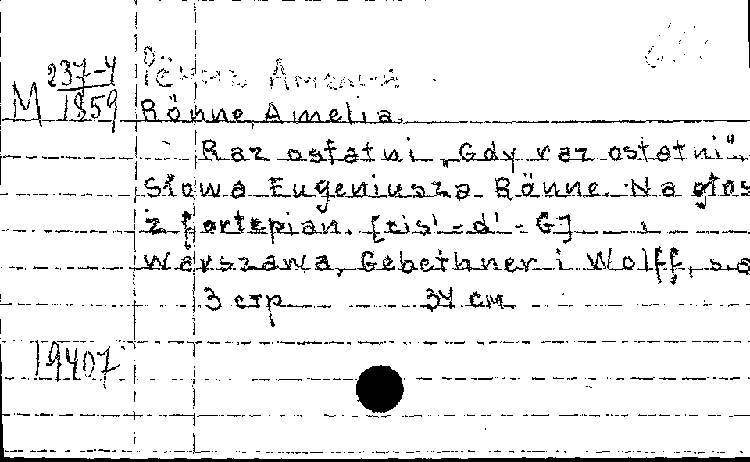 М 237-4/1859
Рённе Амелия
Rönne, Amelia.
Raz ostatni „Gdy raz ostatni".
Słowa Eugeniusza Rönne. Na głos
z fortepian. [cis¹-d¹-G]
Warszawa, Gebethner i Wolff, s.a
3 стр 34 см
19407